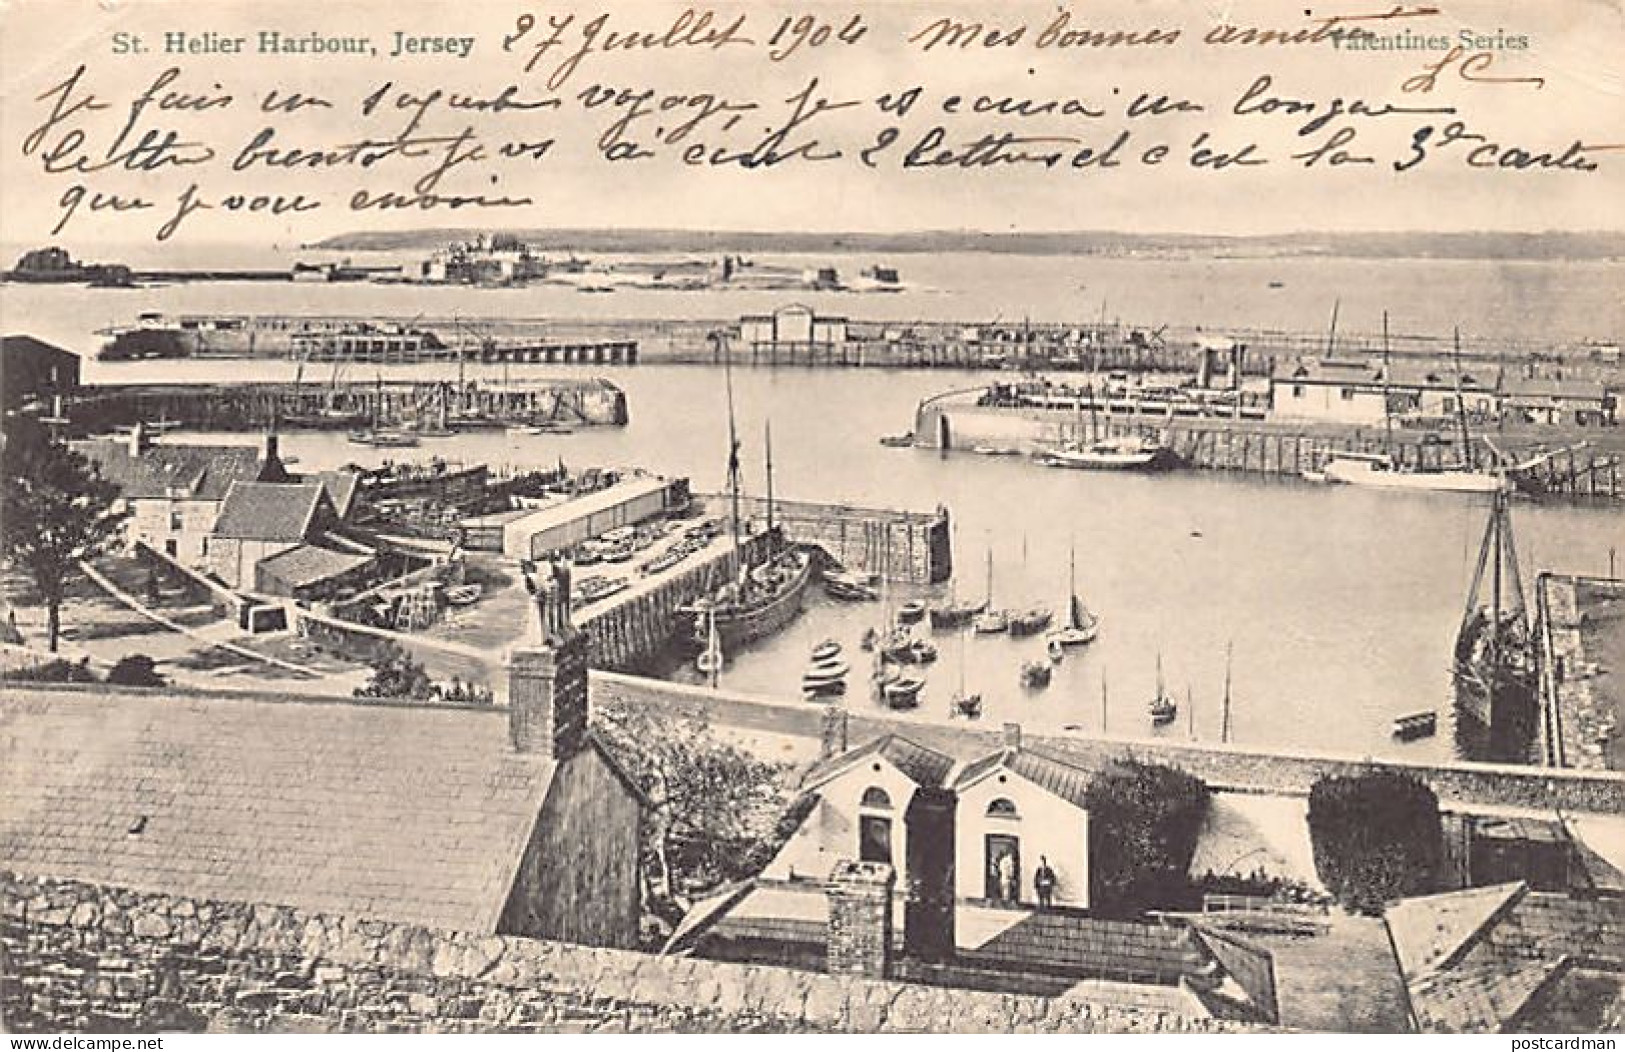 St. Helier Harbour, Jersey 27 Juillet 1904 Mes bonnes amitiés Valentines Series
LC
Je fais un superbe voyage, je vs écrirai un longue
lettre bientot je vs ai écrit 2 lettres et c'est la 3e carte
que je vous envoie
delcampe.net
postcardman